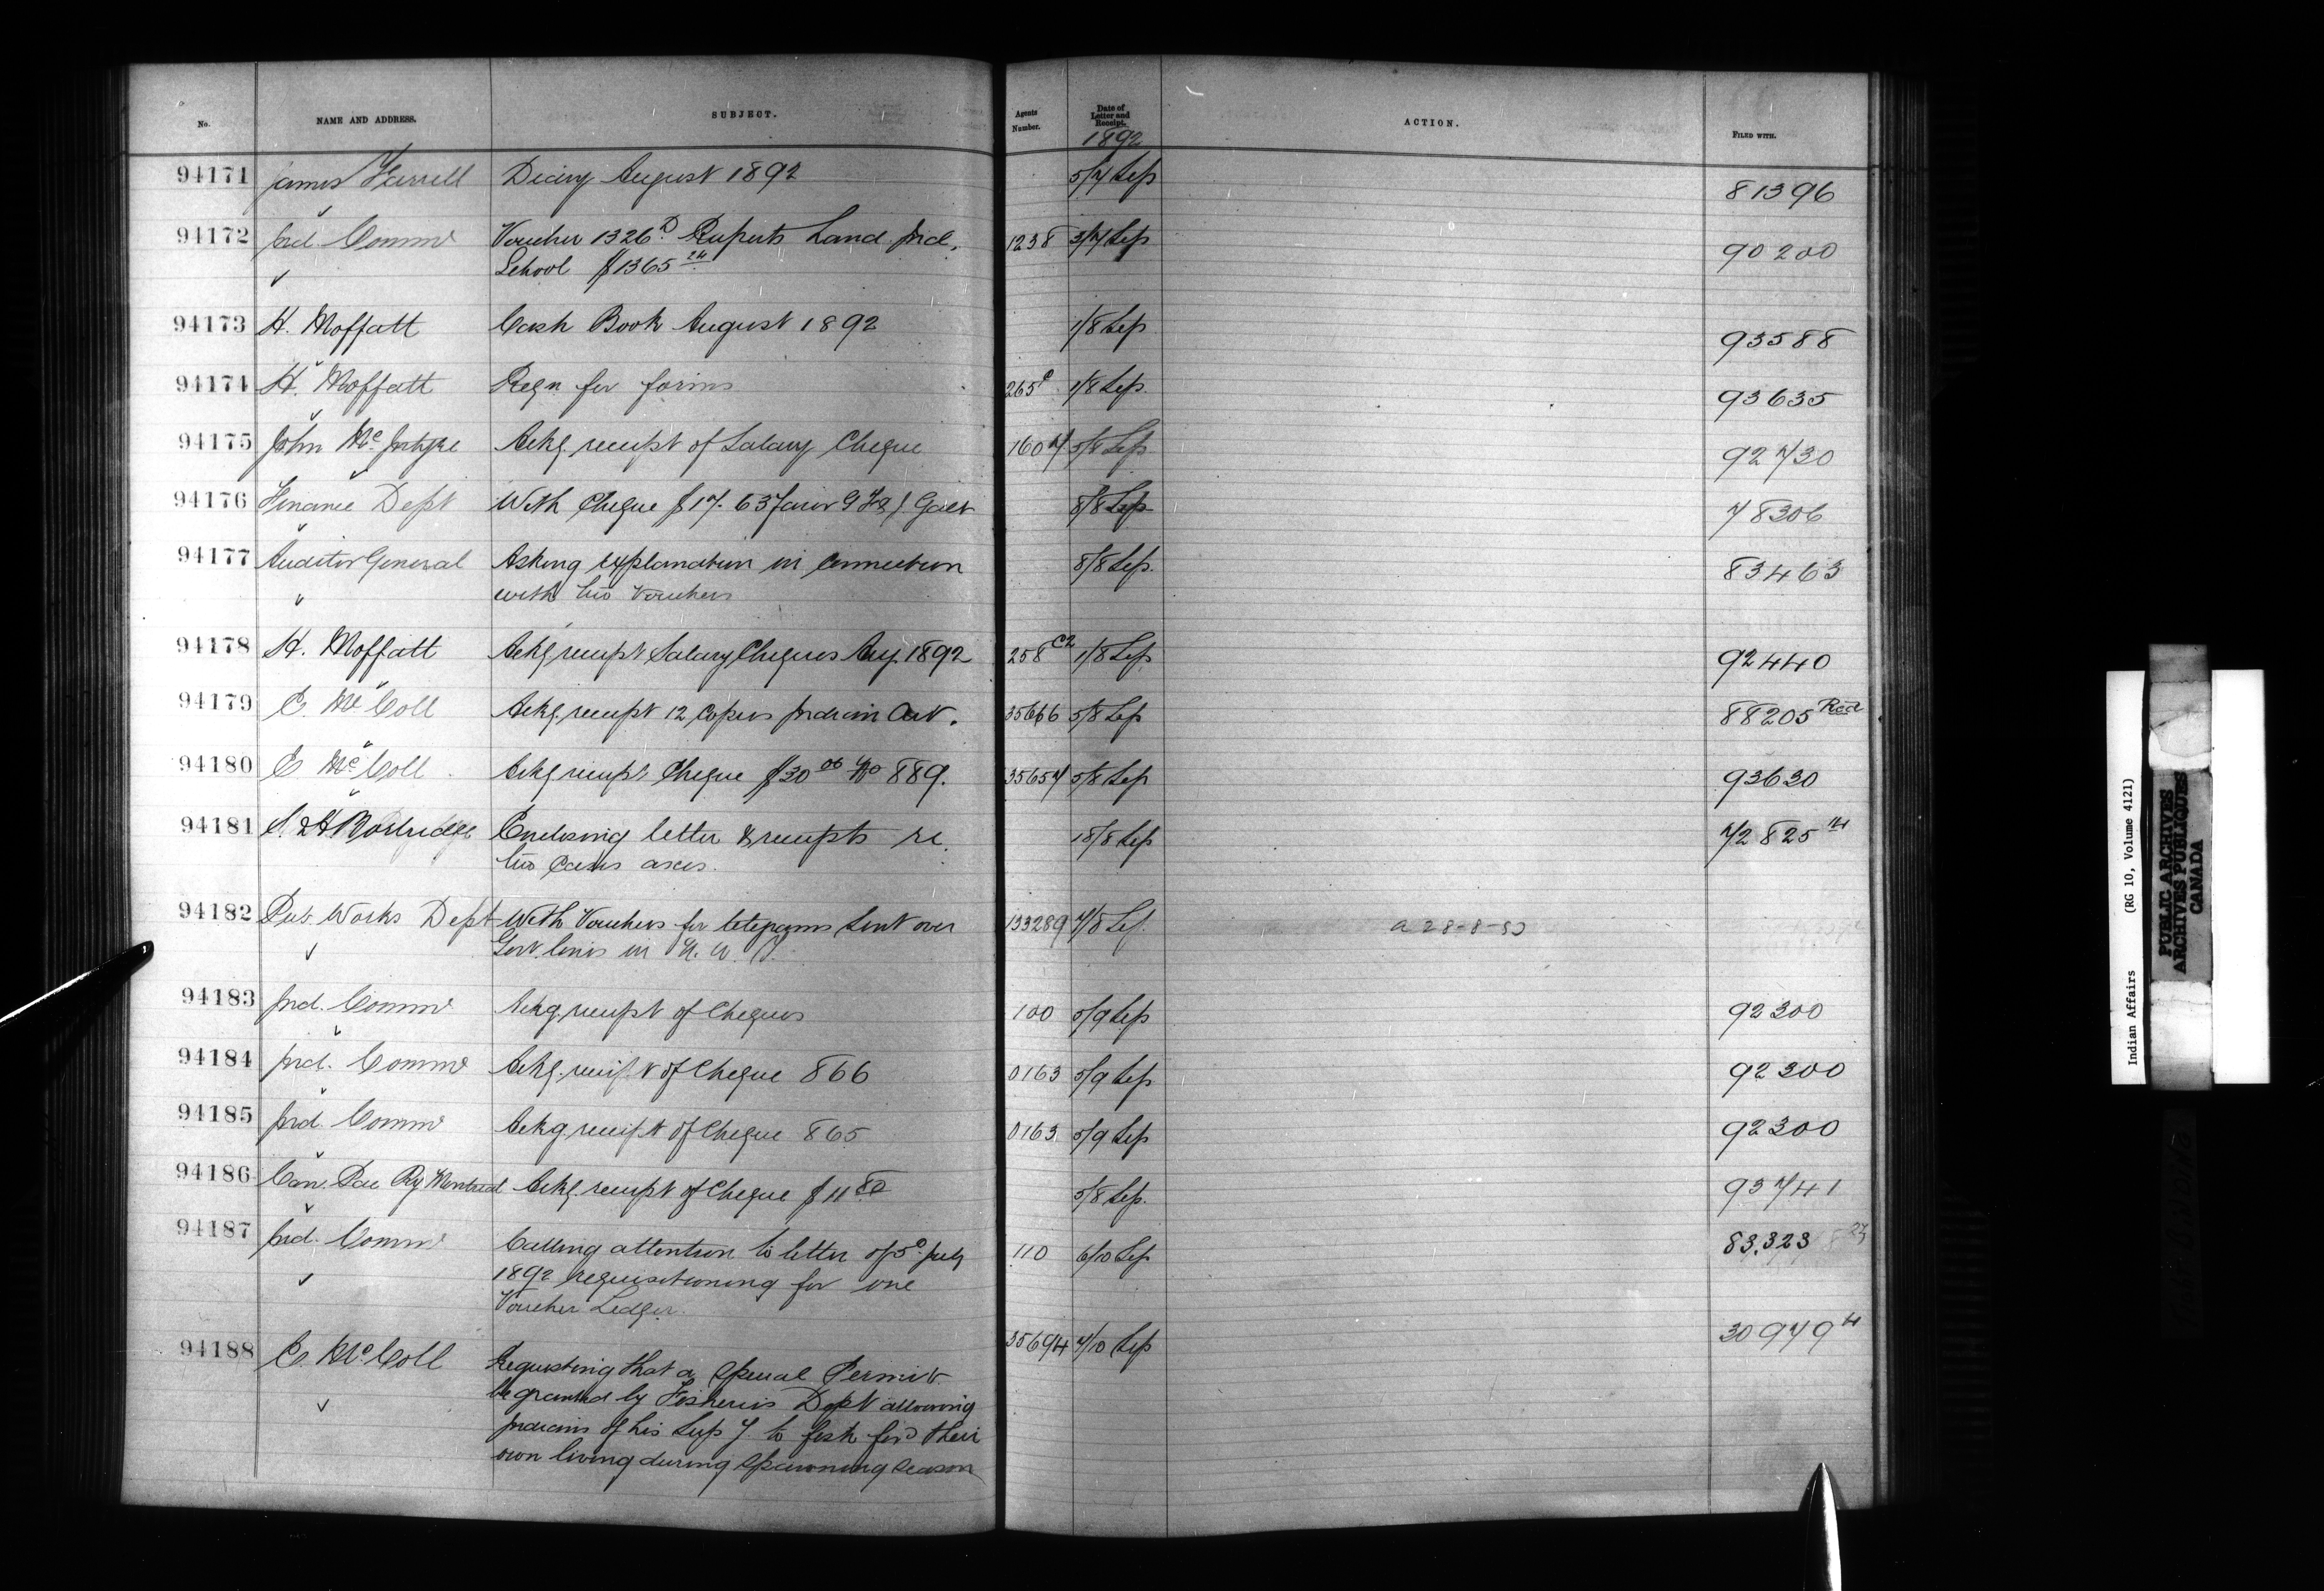 No. NAME AND ADDRESS. SUBJECT. Agents Number. Date of Letter and Receipt. ACTION. FILED WITH.
1892
94171 James Farrell Diary August 1892 5/7 Sep 81396
94172 Ind. Commr Voucher 1326 D Ruperts Land Ind. 1238 3/7 Sep 90200
School $1365 24
94173 H. Moffatt Cash Book August 1892 1/8 Sep 93588
94174 H. Moffatt Reqn for forms 265 c 1/8 Sep. 93635
94175 John McIntyre Ackg. receipt of Salary Cheque 1607 5/8 Sep. 92730
94176 Finance Dept With Cheque $17.63 favor Galt 8/8 Sep 78306
94177 Auditor General Asking explanation in connection 8/8 Sep. 83463
with two Vouchers
94178 H. Moffatt Ackg receipt Salary Cheques Aug 1892 258 C2 1/8 Sep 92440
94179 E. McColl Ackg. receipt 12 Copies Indian Act. 35666 5/8 Sep 88205 Red
94180 E McColl Ackg receipt Cheque $30 00 No 889. 35657 5/8 Sep 93630
94181 Enclosing letter & receipts re. 18/8 Sep 72825 14
two axes.
94182 Pub. Works Dept With Vouchers for telegrams sent over 133289 7/8 Sep. a 28-8-50
Govt. lines in N. W. T.
94183 Ind. Commr Ackg receipt of Cheques 100 5/9 Sep 92300
94184 Ind. Commr Ackg. receipt of Cheque 866 0163 5/9 Sep 92300
94185 Ind. Commr Ackg receipt of Cheque 865 0163 5/9 Sep 92300
94186 Can. Pac Ry Montreal Ackg. receipt of Cheque $11 80 5/8 Sep. 93741
94187 Ind. Commr Calling attention to letter of 5th July 110 6/10 Sep 83,323
1892 requisitioning for one
Voucher Ledger.
94188 E. McColl Requesting that a special Permit 35694 7/10 Sep 30979 4
be granted by Fisheries Dept allowing
Indians of his Supy. to fish for their
own living during spawning season
Indian Affairs (RG 10, Volume 4121)
PUBLIC ARCHIVES
ARCHIVES PUBLIQUES
CANADA